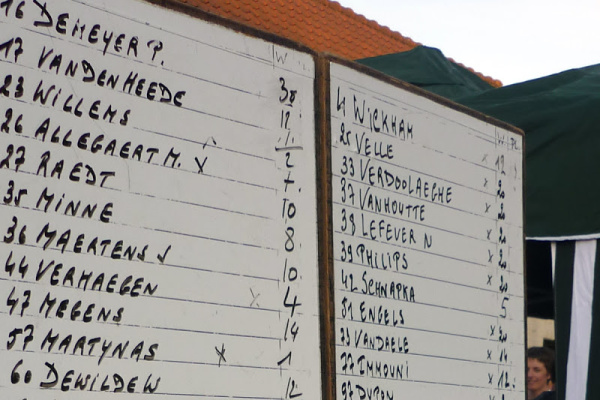 16 DEMEYER P.
17 VANDENHEEDE
23 WILLEMS
26 ALLEGAERT M. X
27 RAEDT
35 MINNE
36 MAERTENS J
44 VERHAEGEN
47 MEGENS
57 MARTYNAS X
60 DEWILDE W
W
12
2
10
8
10
4
14
1
12
4 WICKHAM
25 VELLE
33 VERDOOLAEGHE
37 VANHOUTTE
38 LEFEVER N
39 PHILIPS
42 SCHNAPKA
51 ENGELS
VANDAELE
77 IMMOUNI
W PL
x
x
x
x
x
5
x
x 14
x 12